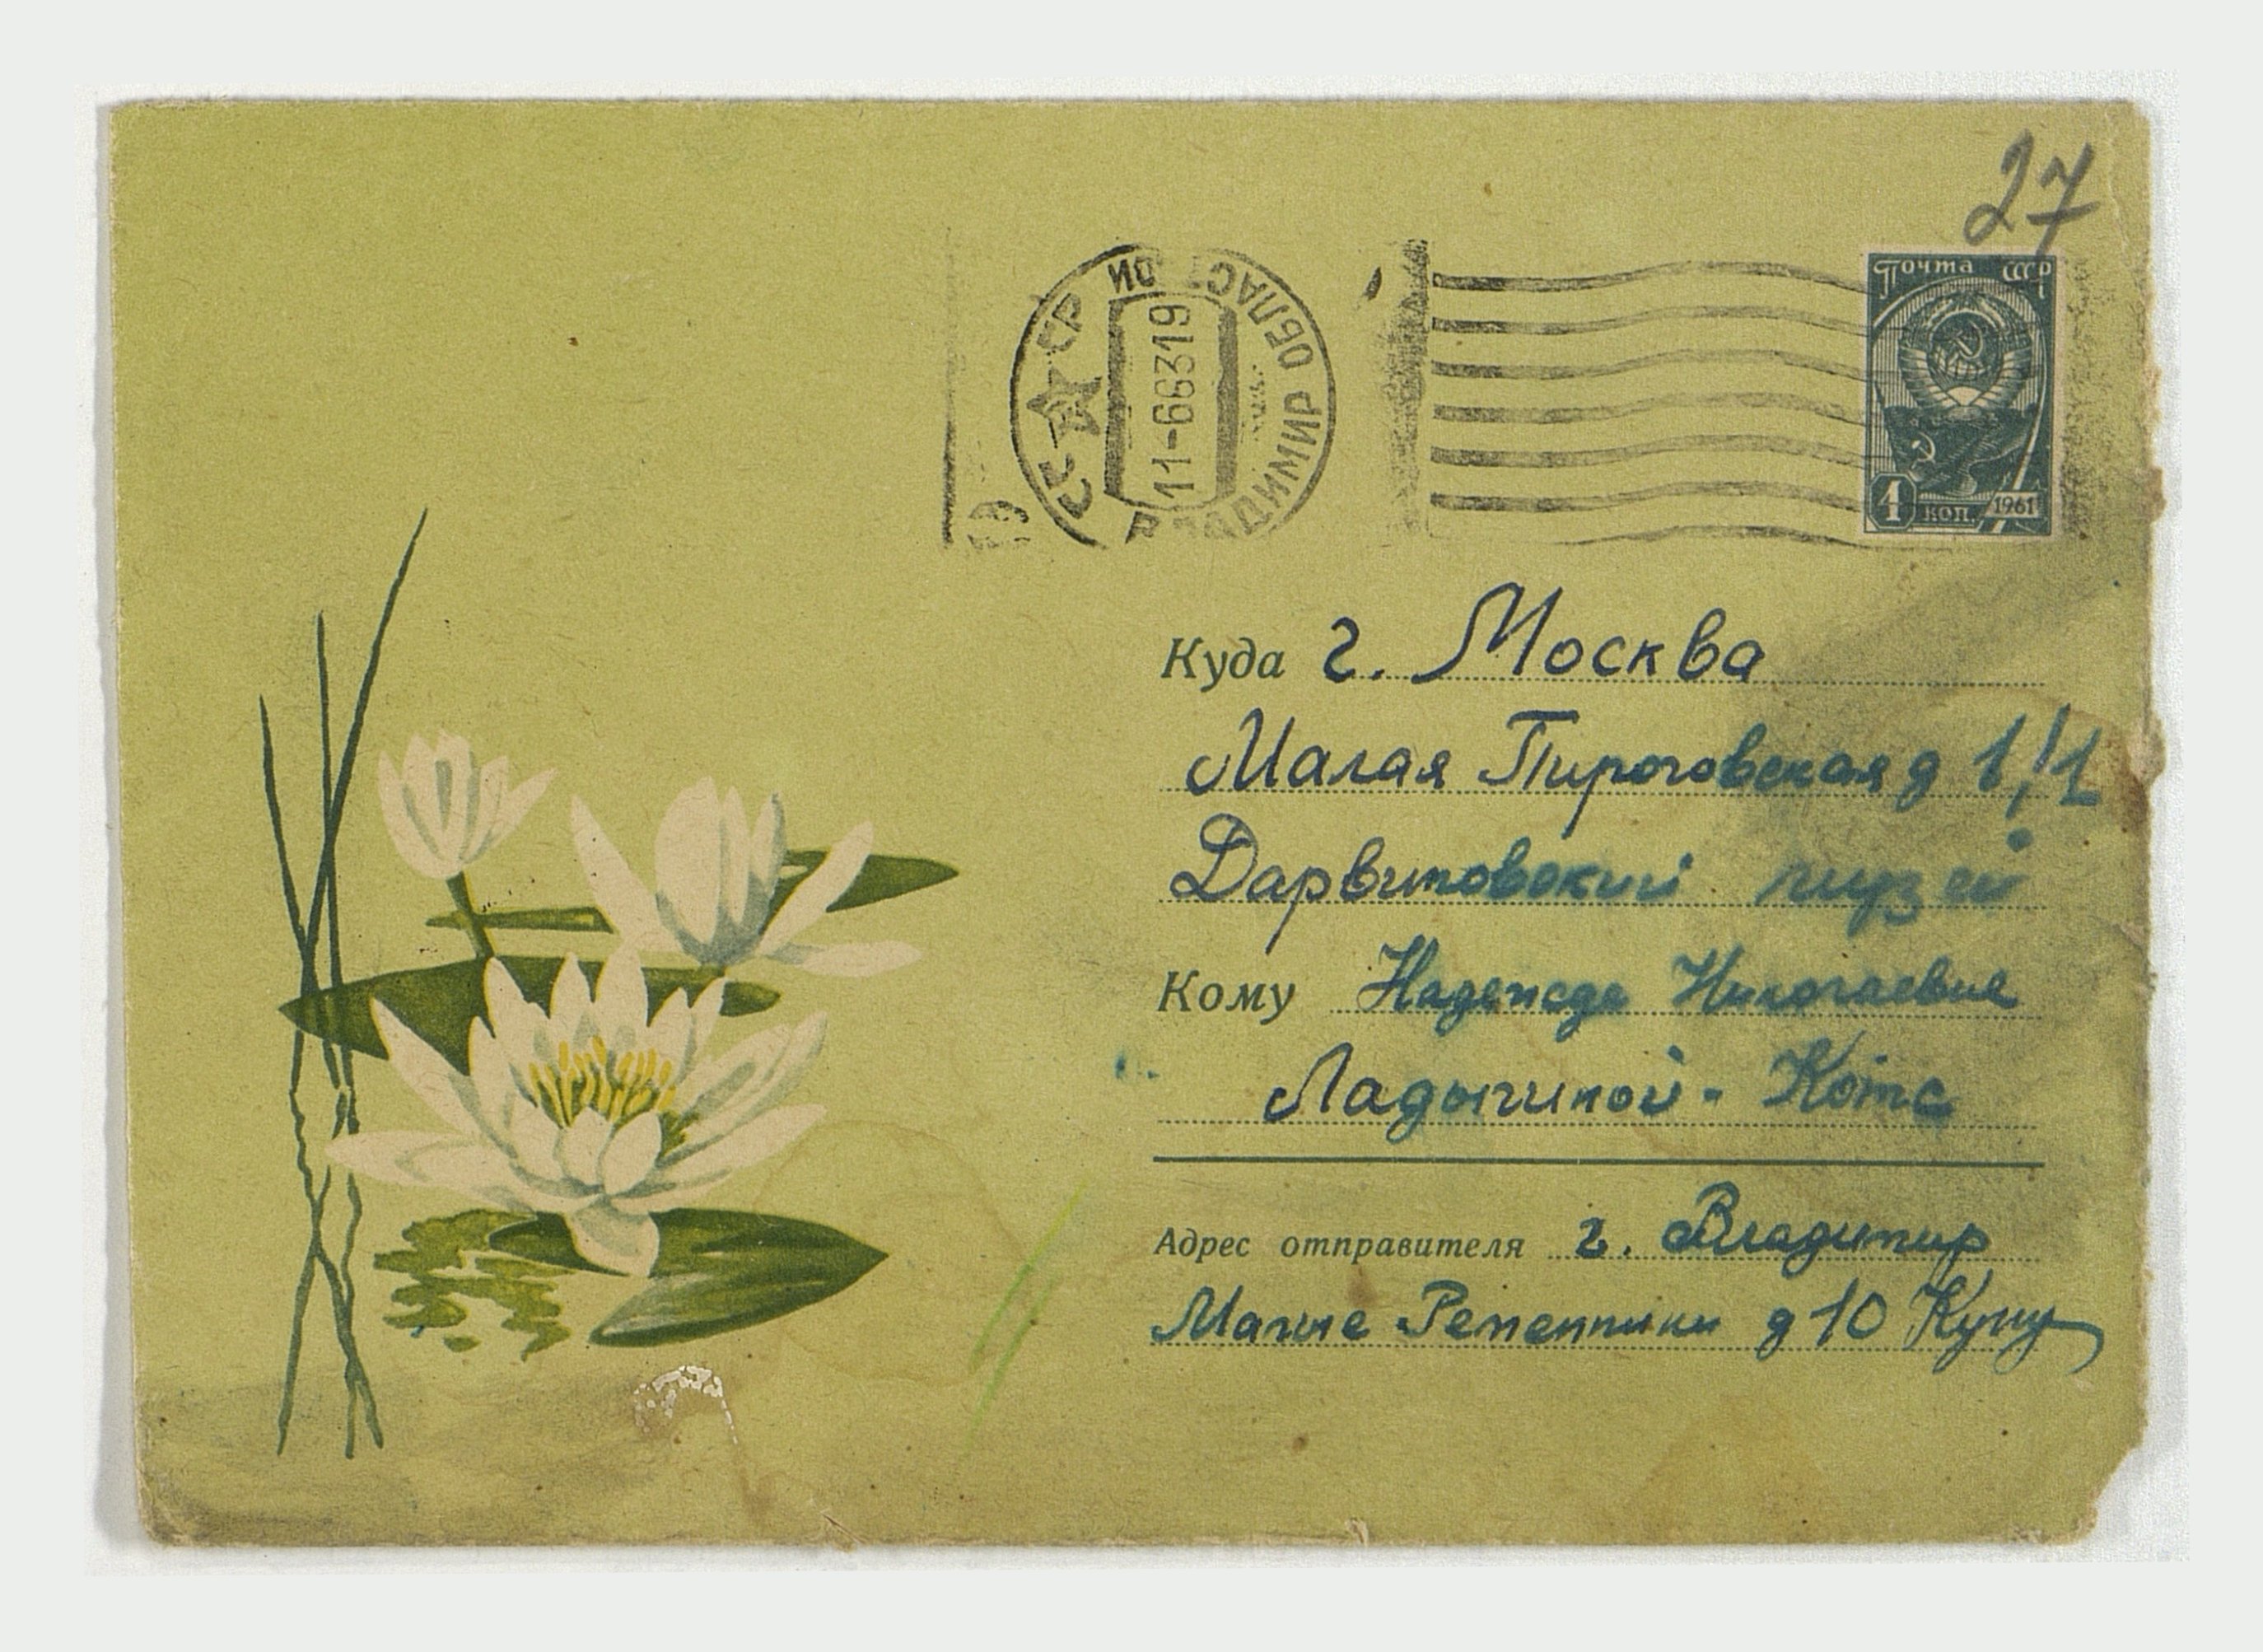 27
СССР
ВЛАДИМИР ОБЛАСТНОЙ
11-66319
Почта СССР
4 коп. 1961
Куда г. Москва
Малая Пироговская д 1/1
Дарвиновский музей
Кому Надежде Николаевне
Ладыгиной - Котс
Адрес отправителя г. Владимир
Малые Ременники д 10